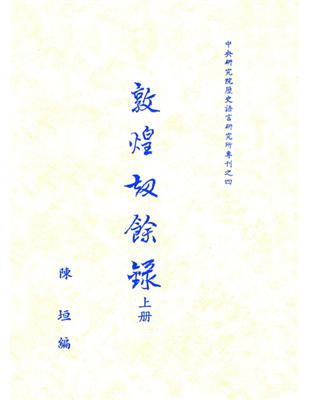 中央研究院歷史語言研究所專刊之四
敦煌劫餘錄
上册
陳垣編